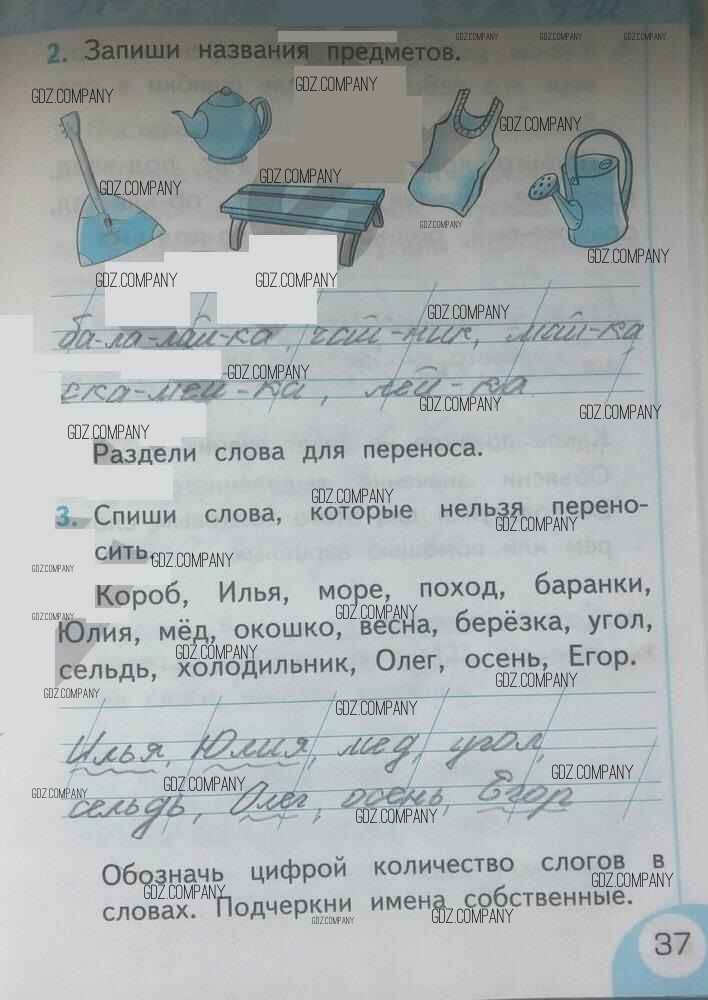 2. Запиши названия предметов.
ба-ла-лай-ка, чай-ник, май-ка
ска-мей-ка, лей-ка
Раздели слова для переноса.
3. Спиши слова, которые нельзя перено-
сить.
Короб, Илья, море, поход, баранки,
Юлия, мёд, окошко, весна, берёзка, угол,
сельдь, холодильник, Олег, осень, Егор.
Илья, Юлия, мед, угол,
сельдь, Олег, осень, Егор
Обозначь цифрой количество слогов в
словах. Подчеркни имена собственные.
37
GDZ.COMPANY